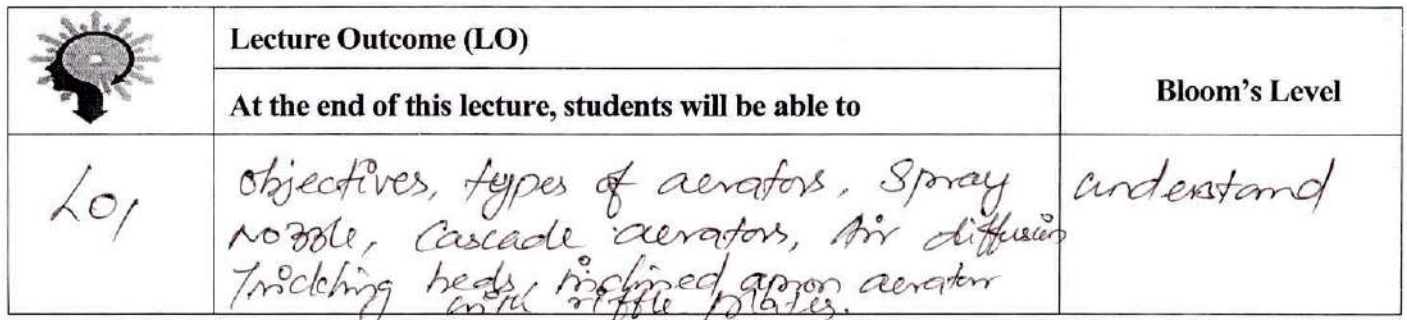 Lecture Outcome (LO)
At the end of this lecture, students will be able to
Bloom's Level
LO1
objectives, types of aerators, Spray
Nozzle, Cascade aerators, Air diffusion
Trickling beds, inclined apron aerator
with riffle plates.
understand